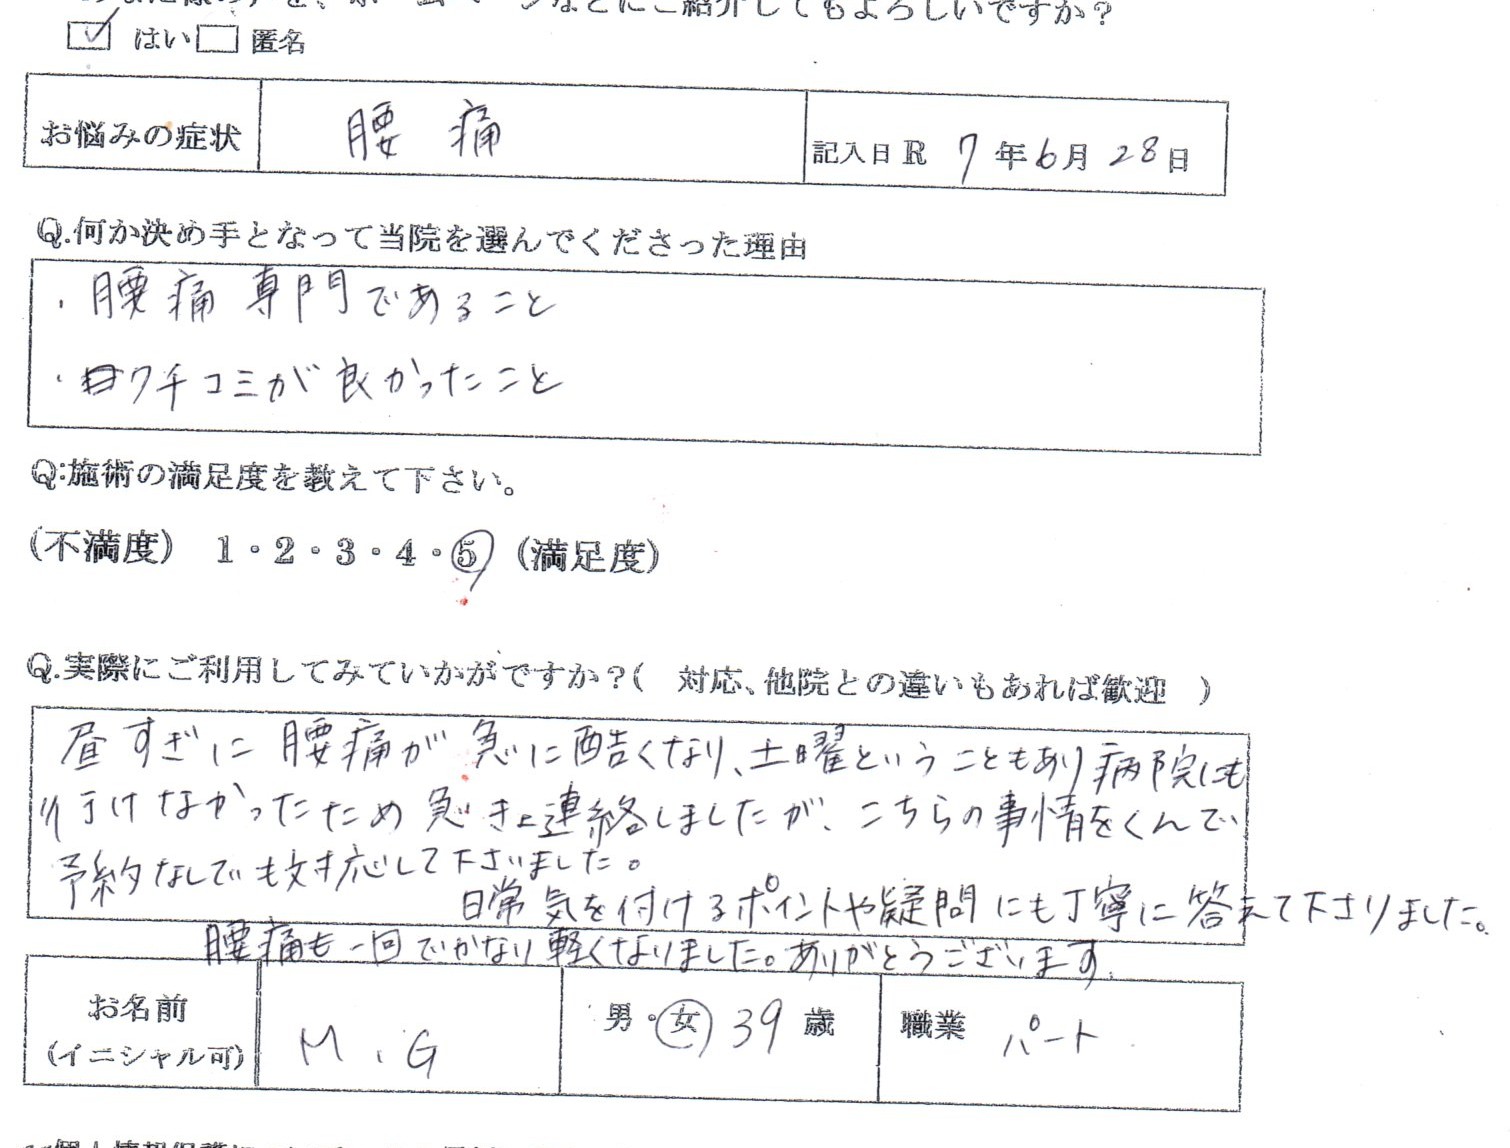 などにご紹介してもよろしいですか？
はい 匿名
お悩みの症状 腰痛 記入日 R 7年6月28日
Q.何か決め手となって当院を選んでくださった理由
・腰痛専門であること
・クチコミが良かったこと
Q:施術の満足度を教えて下さい。
(不満度) 1・2・3・4・5 (満足度)
Q.実際にご利用してみていかがですか？( 対応、他院との違いもあれば歓迎 )
昼すぎに腰痛が急に酷くなり、土曜ということもあり病院にも
行けなかったため急きょ連絡しましたが、こちらの事情をくんで
予約なしでも対応して下さいました。
日常気を付けるポイントや疑問にも丁寧に答えて下さりました。
腰痛も一回でかなり軽くなりました。ありがとうございます。
お名前 (イニシャル可) M.G 男・女 39歳 職業 パート